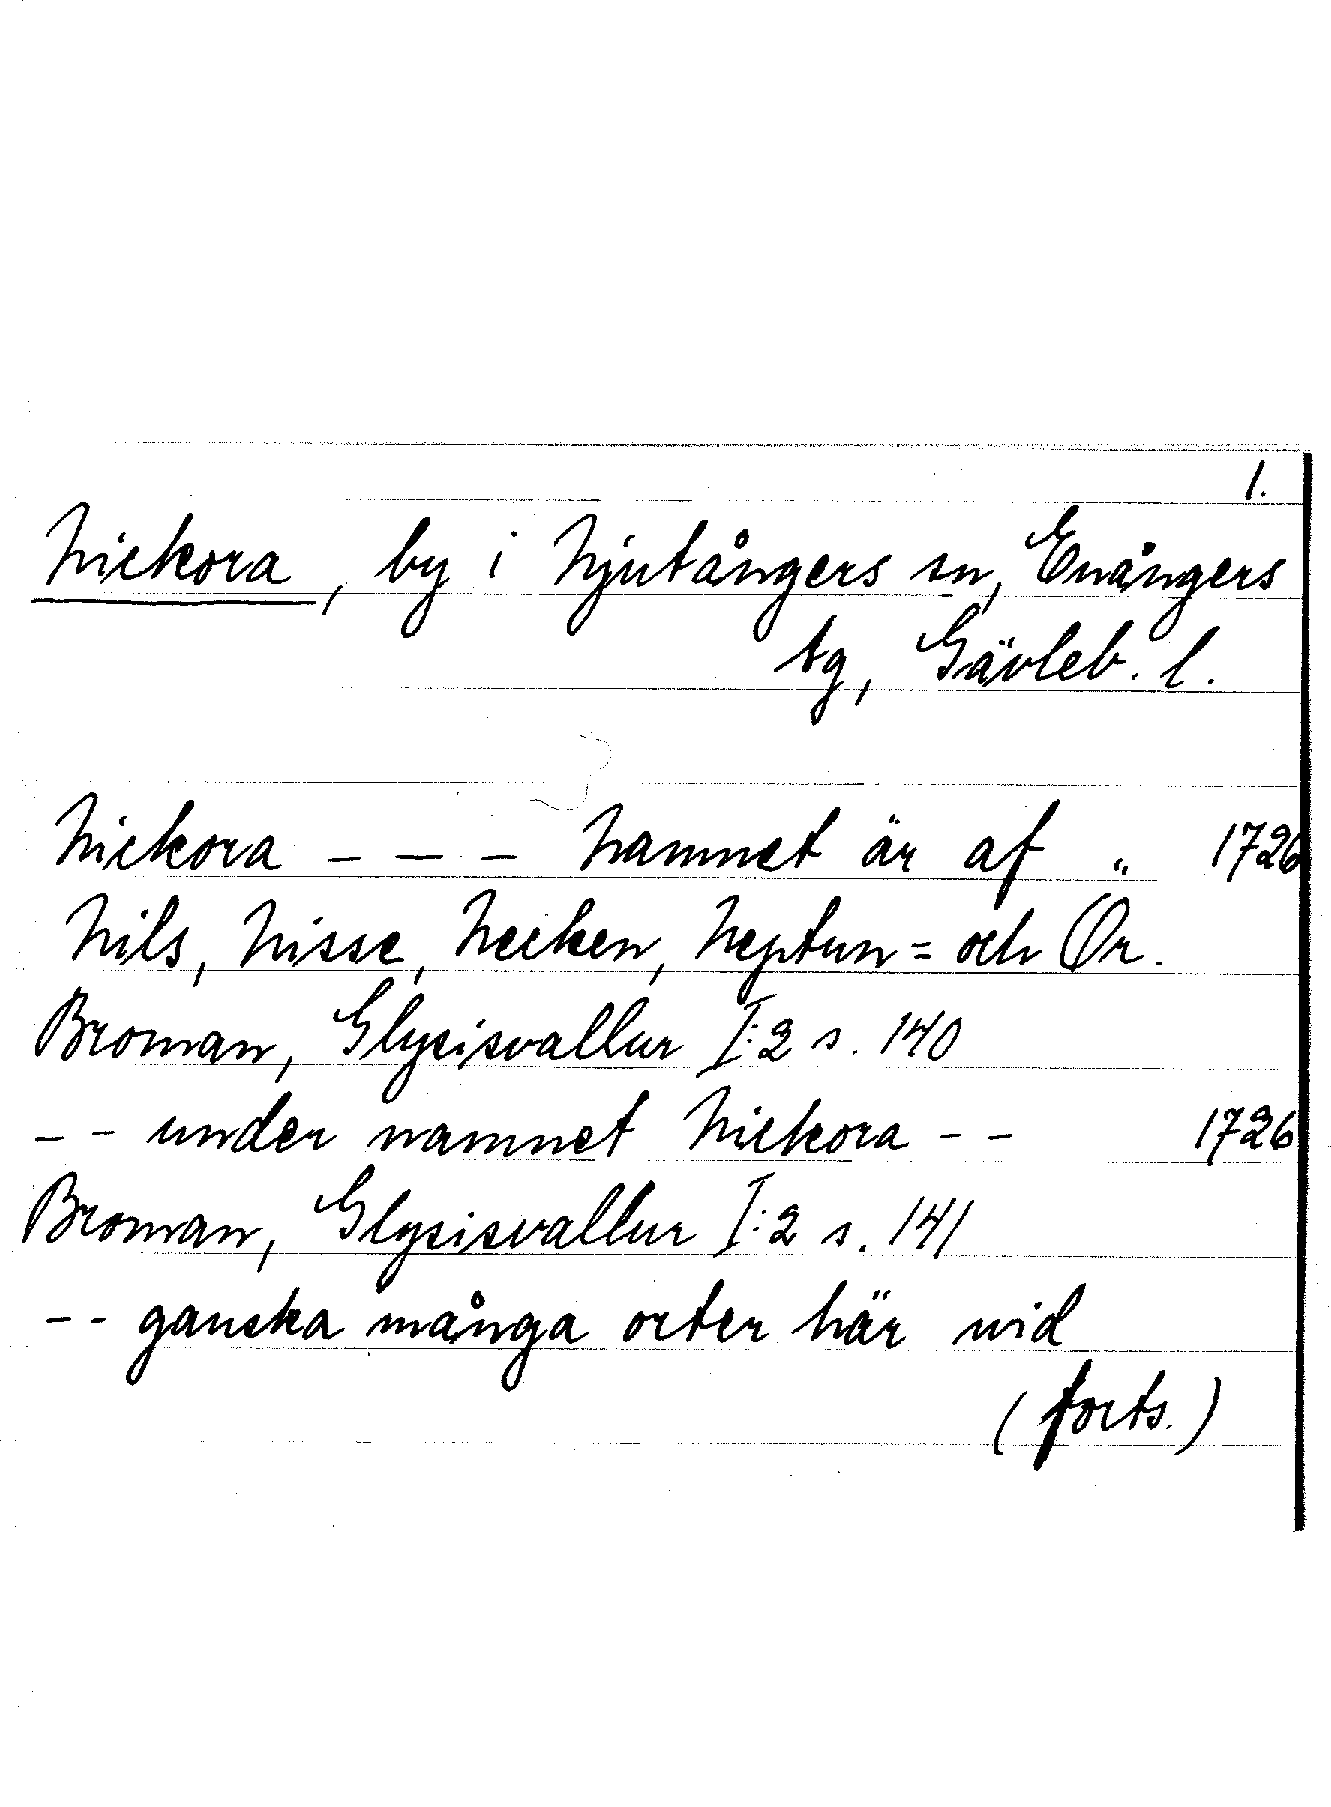 1.
Nickora, by i Njutångers sn, Enångers
tg, Gävleb. l.
Nickora - - - Namnet är af „ 1726
Nils, Nisse, Necken, Neptun= och Or.
Broman, Glysisvallur I:2 s. 140
-- under namnet Nickora -- 1726
Broman, Glysisvallur I:2 s. 141
-- ganska många orter här wid
(forts.)